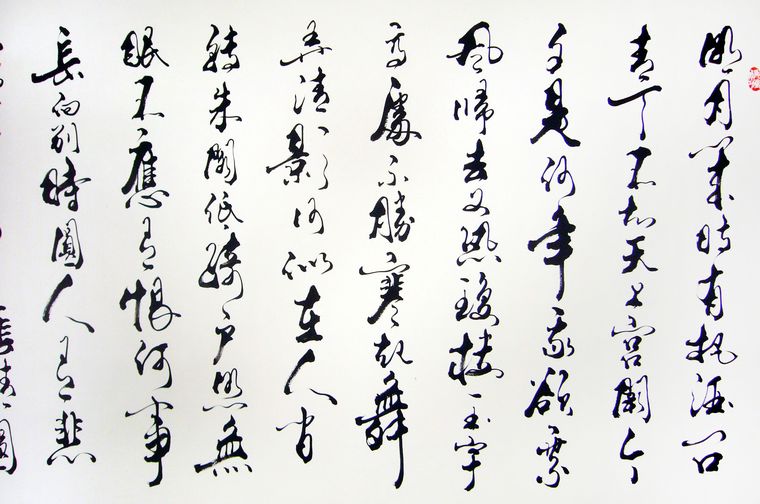 明月幾時有把酒问
青天不知天上宫闕今
夕是何年我欲乘
風歸去又恐瓊樓玉宇
高處不勝寒起舞
弄清影何似在人间
轉朱閣低綺户照無
眠不應有恨何事
長向别時圓人有悲